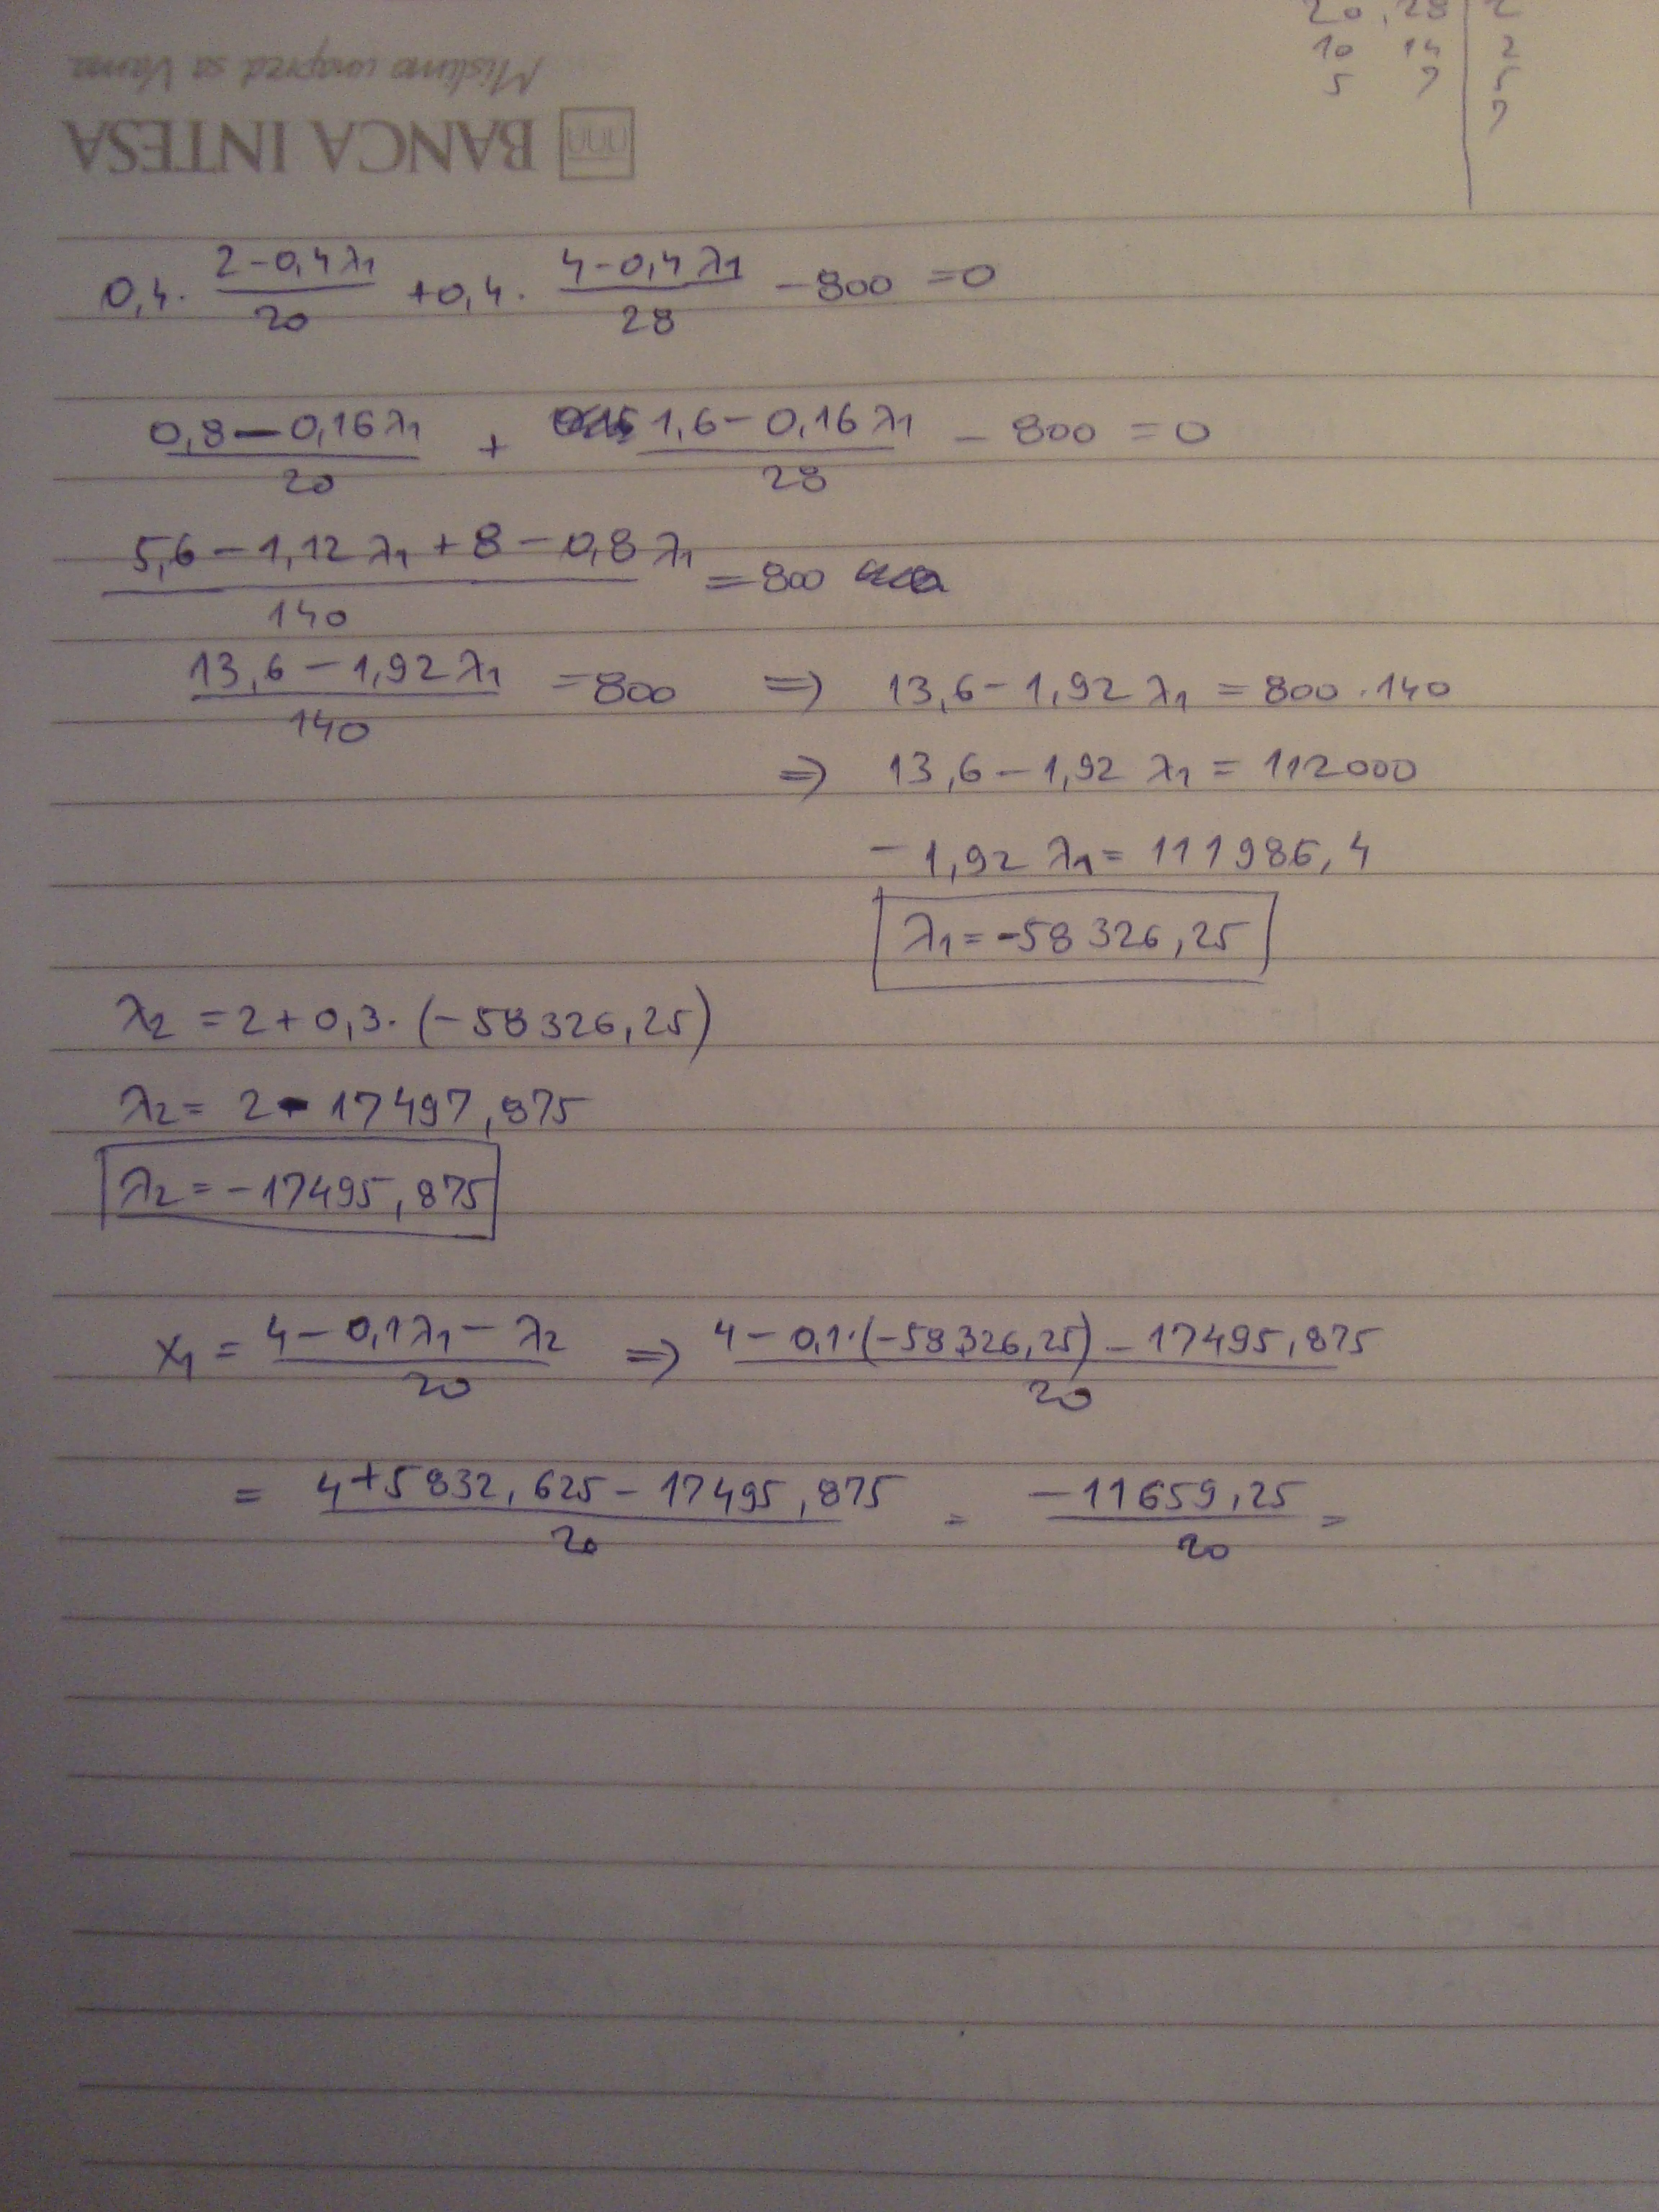 20, 28 | 2
10 14 | 2
5 7 | 5
7
Mislimo unapred sa Vama
BANCA INTESA
0,4 · (2-0,4λ1)/20 + 0,4 · (4-0,4λ1)/28 - 800 = 0
(0,8-0,16λ1)/20 + (1,6-0,16λ1)/28 - 800 = 0
(5,6-1,12λ1+8-0,8λ1)/140 = 800
(13,6-1,92λ1)/140 = 800 => 13,6-1,92λ1 = 800·140
=> 13,6-1,92λ1 = 112000
-1,92λ1 = 111986,4
λ1 = -58326,25
λ2 = 2+0,3·(-58326,25)
λ2 = 2-17497,875
λ2 = -17495,875
x1 = (4-0,1λ1-λ2)/20 => (4-0,1·(-58326,25)-17495,875)/20
= (4+5832,625-17495,875)/20 = -11659,25/20 =